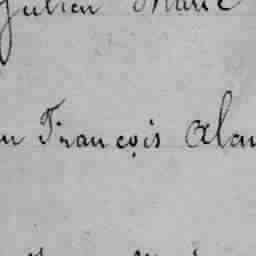 Julien Marie
François Alan